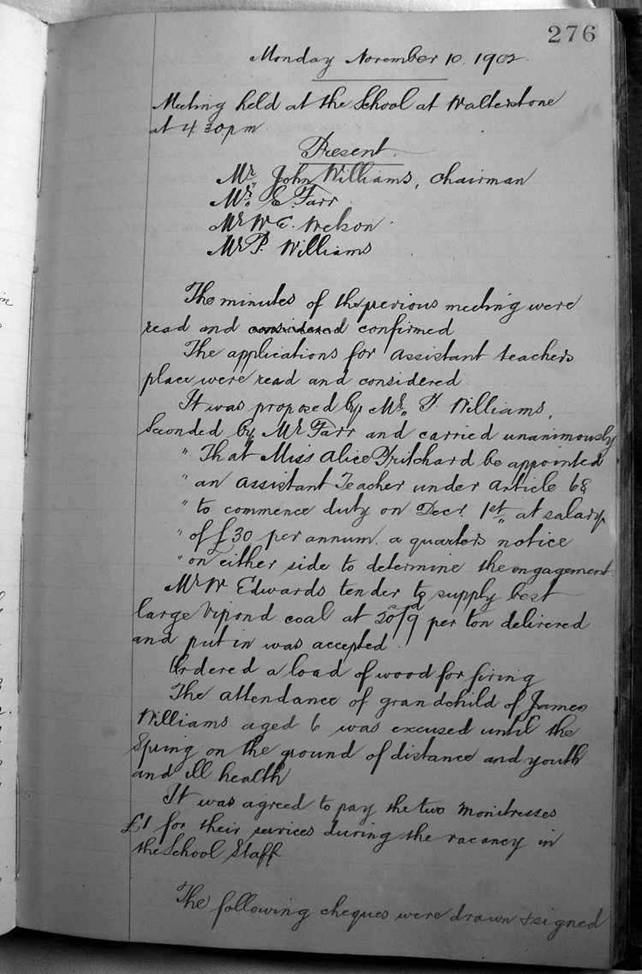 276
Monday November 10. 1902.
Meeting held at the School at Walterstone
at 4.30pm
Present.
Mr. John Williams, Chairman
Mr. E Farr
Mr W E. Nelson
Mr P. Williams
The minutes of the previous meeting were
read and considered confirmed
The applications for Assistant teachers
place were read and considered
It was proposed by Mr. Williams,
Seconded by Mr Farr and carried unanimously
" That Miss Alice Pritchard be appointed
" an Assistant Teacher under Article 68
" to commence duty on Decr 1st, at salary
" of £30 per annum. a quarters notice
" on either side to determine the engagement
Mr W Edwards tender to supply best
large Vipond coal at per ton delivered
and put in was accepted.
Ordered a load of wood for firing
The attendance of grandchild of James
Williams aged 6 was excused until the
Spring on the ground of distance and youth
and ill health
It was agreed to pay the two monitresses
£1 for their services during the vacancy in
the School Staff
The following cheques were drawn & signed